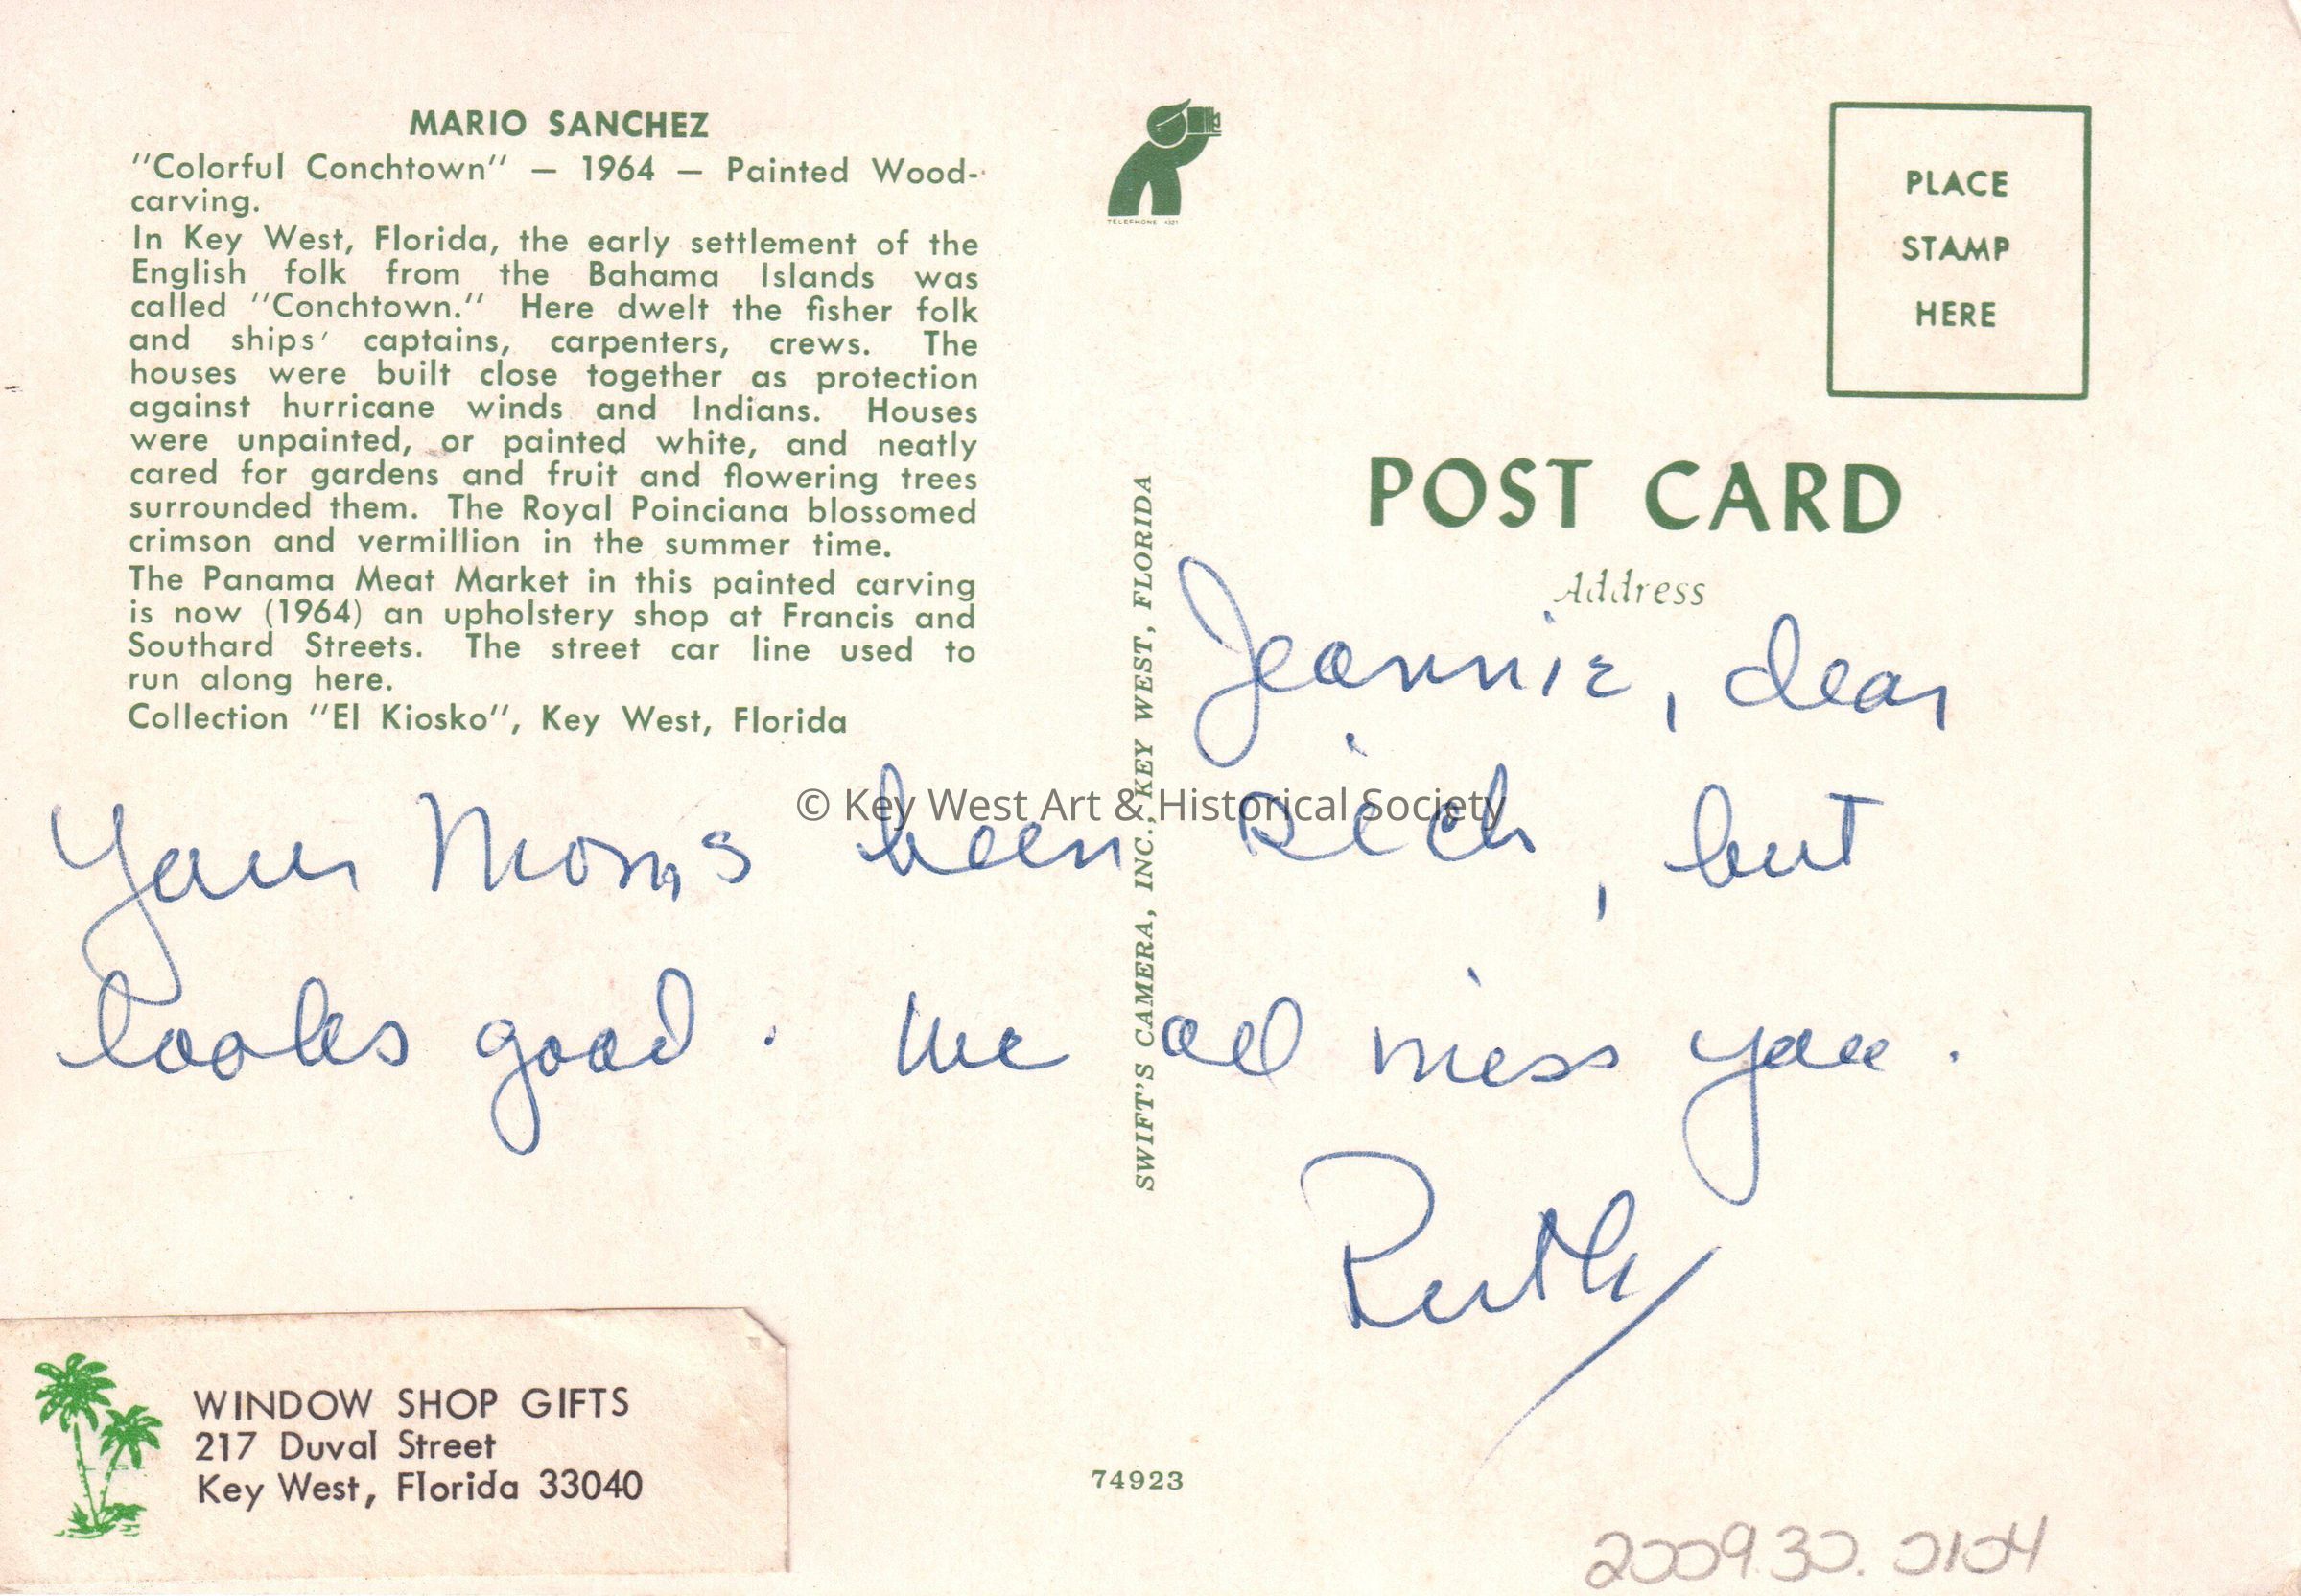 MARIO SANCHEZ
"Colorful Conchtown" — 1964 — Painted Wood-
carving.
In Key West, Florida, the early settlement of the
English folk from the Bahama Islands was
called "Conchtown." Here dwelt the fisher folk
and ships' captains, carpenters, crews. The
houses were built close together as protection
against hurricane winds and Indians. Houses
were unpainted, or painted white, and neatly
cared for gardens and fruit and flowering trees
surrounded them. The Royal Poinciana blossomed
crimson and vermillion in the summer time.
The Panama Meat Market in this painted carving
is now (1964) an upholstery shop at Francis and
Southard Streets. The street car line used to
run along here.
Collection "El Kiosko", Key West, Florida
TELEPHONE 4321
SWIFT'S CAMERA, INC., KEY WEST, FLORIDA
PLACE
STAMP
HERE
POST CARD
Address
Jeannie, dear
Your Mom,s been sick, but
looks good. We all miss you.
Ruth
© Key West Art & Historical Society
WINDOW SHOP GIFTS
217 Duval Street
Key West, Florida 33040
74923
2009.30.0104